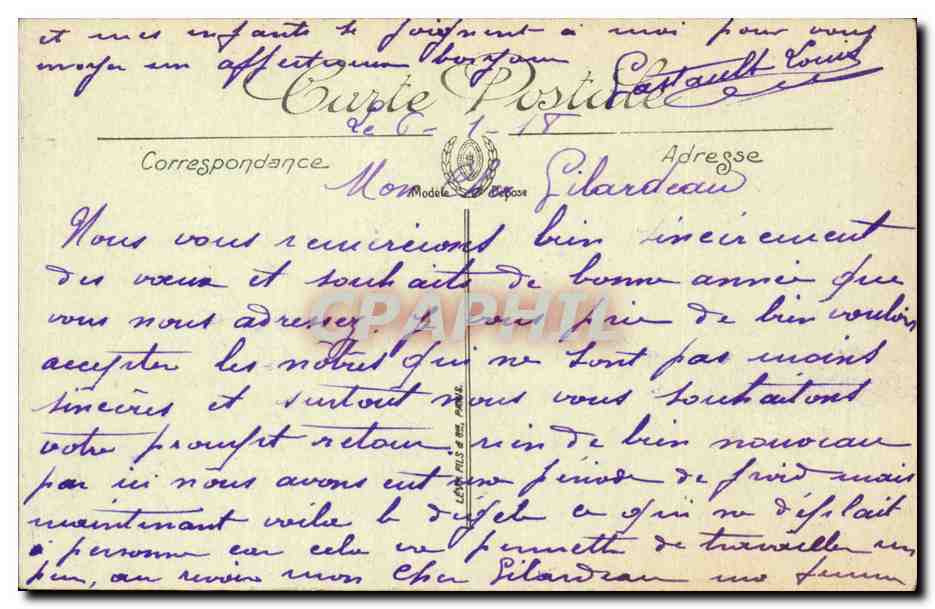 et mes enfants se joignent à moi pour vous
envoyer un affectueux bonjour Gastault Louis
Carte Postale
Le 6-1-18
Correspondance
Adresse
Mon cher Gilardeau
Modèle Déposé
Nous vous remercions bien sincèrement
des vœux et souhaits de bonne année que
vous nous adressez. je vous prie de bien vouloir
accepter les nôtres qui ne sont pas moins
sincères et surtout nous vous souhaitons
votre prompt retour. rien de bien nouveau
par ici nous avons eut une période de froid mais
maintenant voila le dégele ce qui ne déplait
à personne car cela va permettre de travailler un
peu, au revoir mon cher Gilardeau ma femme
LEVY FILS & Cie, PARIS.
CPAPHIL